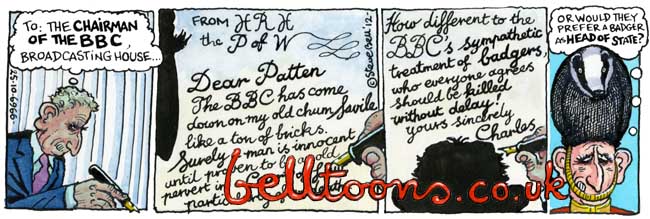 TO: THE CHAIRMAN
OF THE BBC,
BROADCASTING HOUSE...
9969-01-57
FROM HRH
the P of W
©Steve Bell '12
Dear Patten
The BBC has come
down on my old chum Savile
like a ton of bricks.
Surely a man is innocent
until proven to be a
pervert in
How different to the
BBC's sympathetic
treatment of badgers,
who everyone agrees
should be killed
without delay!
yours sincerely
Charles
OR WOULD THEY
PREFER A BADGER
AS HEAD OF STATE?
belltoons.co.uk